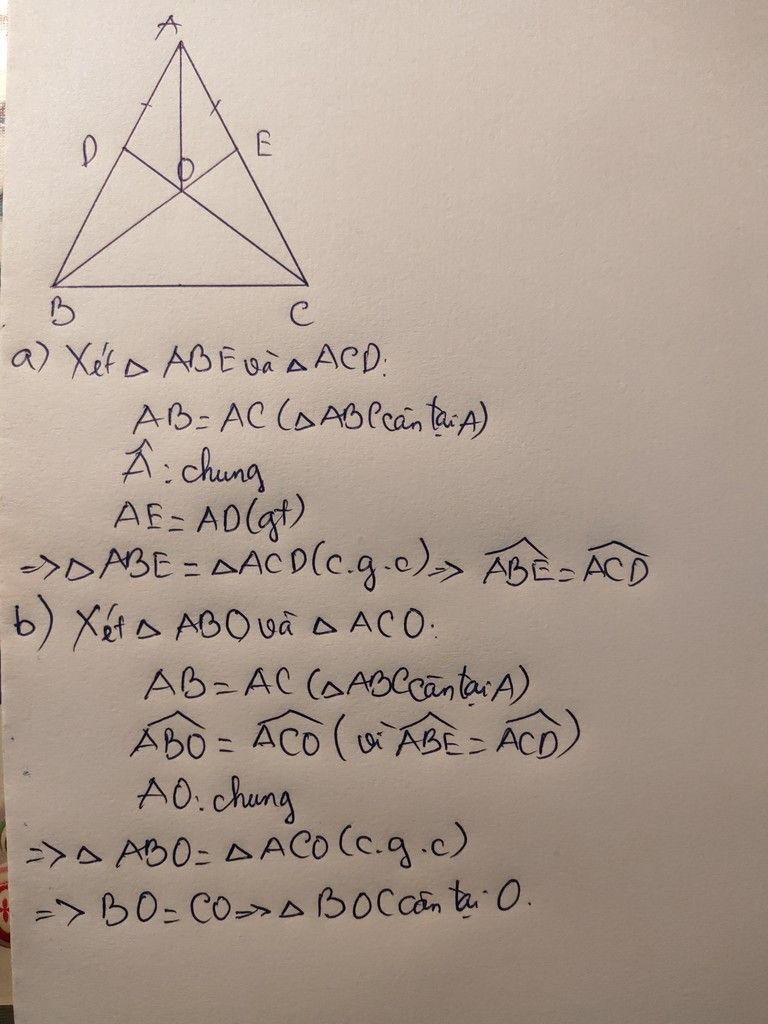 A
D
E
O
B
C
a) Xét △ ABE và △ ACD:
AB = AC (△ ABC cân tại A)
Â: chung
AE = AD (gt)
=> △ ABE = △ ACD (c.g.c) => \widehat{ABE} = \widehat{ACD}
b) Xét △ ABO và △ ACO:
AB = AC (△ ABC cân tại A)
\widehat{ABO} = \widehat{ACO} (vì \widehat{ABE} = \widehat{ACD})
AO: chung
=> △ ABO = △ ACO (c.g.c)
=> BO = CO => △ BOC cân tại O.